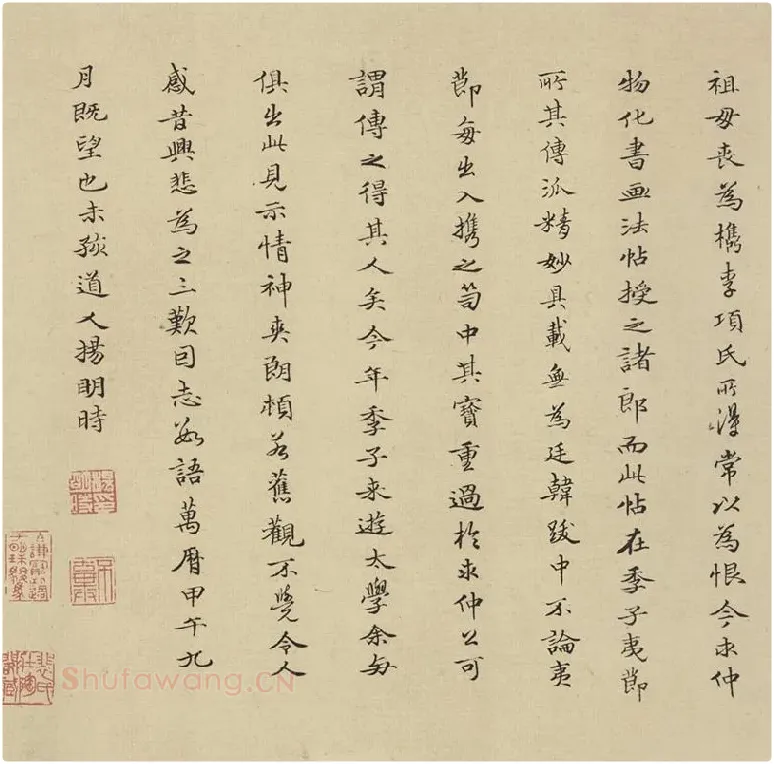 祖母喪為檇李項氏所得常以為恨今求仲
物化書畫法帖授之諸郎而此帖在季子夷節
所其傳派精妙具載無為廷韓跋中不論夷
節每出入攜之笥中其寶重過於求仲公可
謂傳之得其人矣今年季子來遊太學余每
俱出此見示情神爽朗頓若舊觀不覺令人
感昔興悲為之三歎囙志數語萬曆甲午九
月既望也未孩道人揚明時
Shufawang.CN